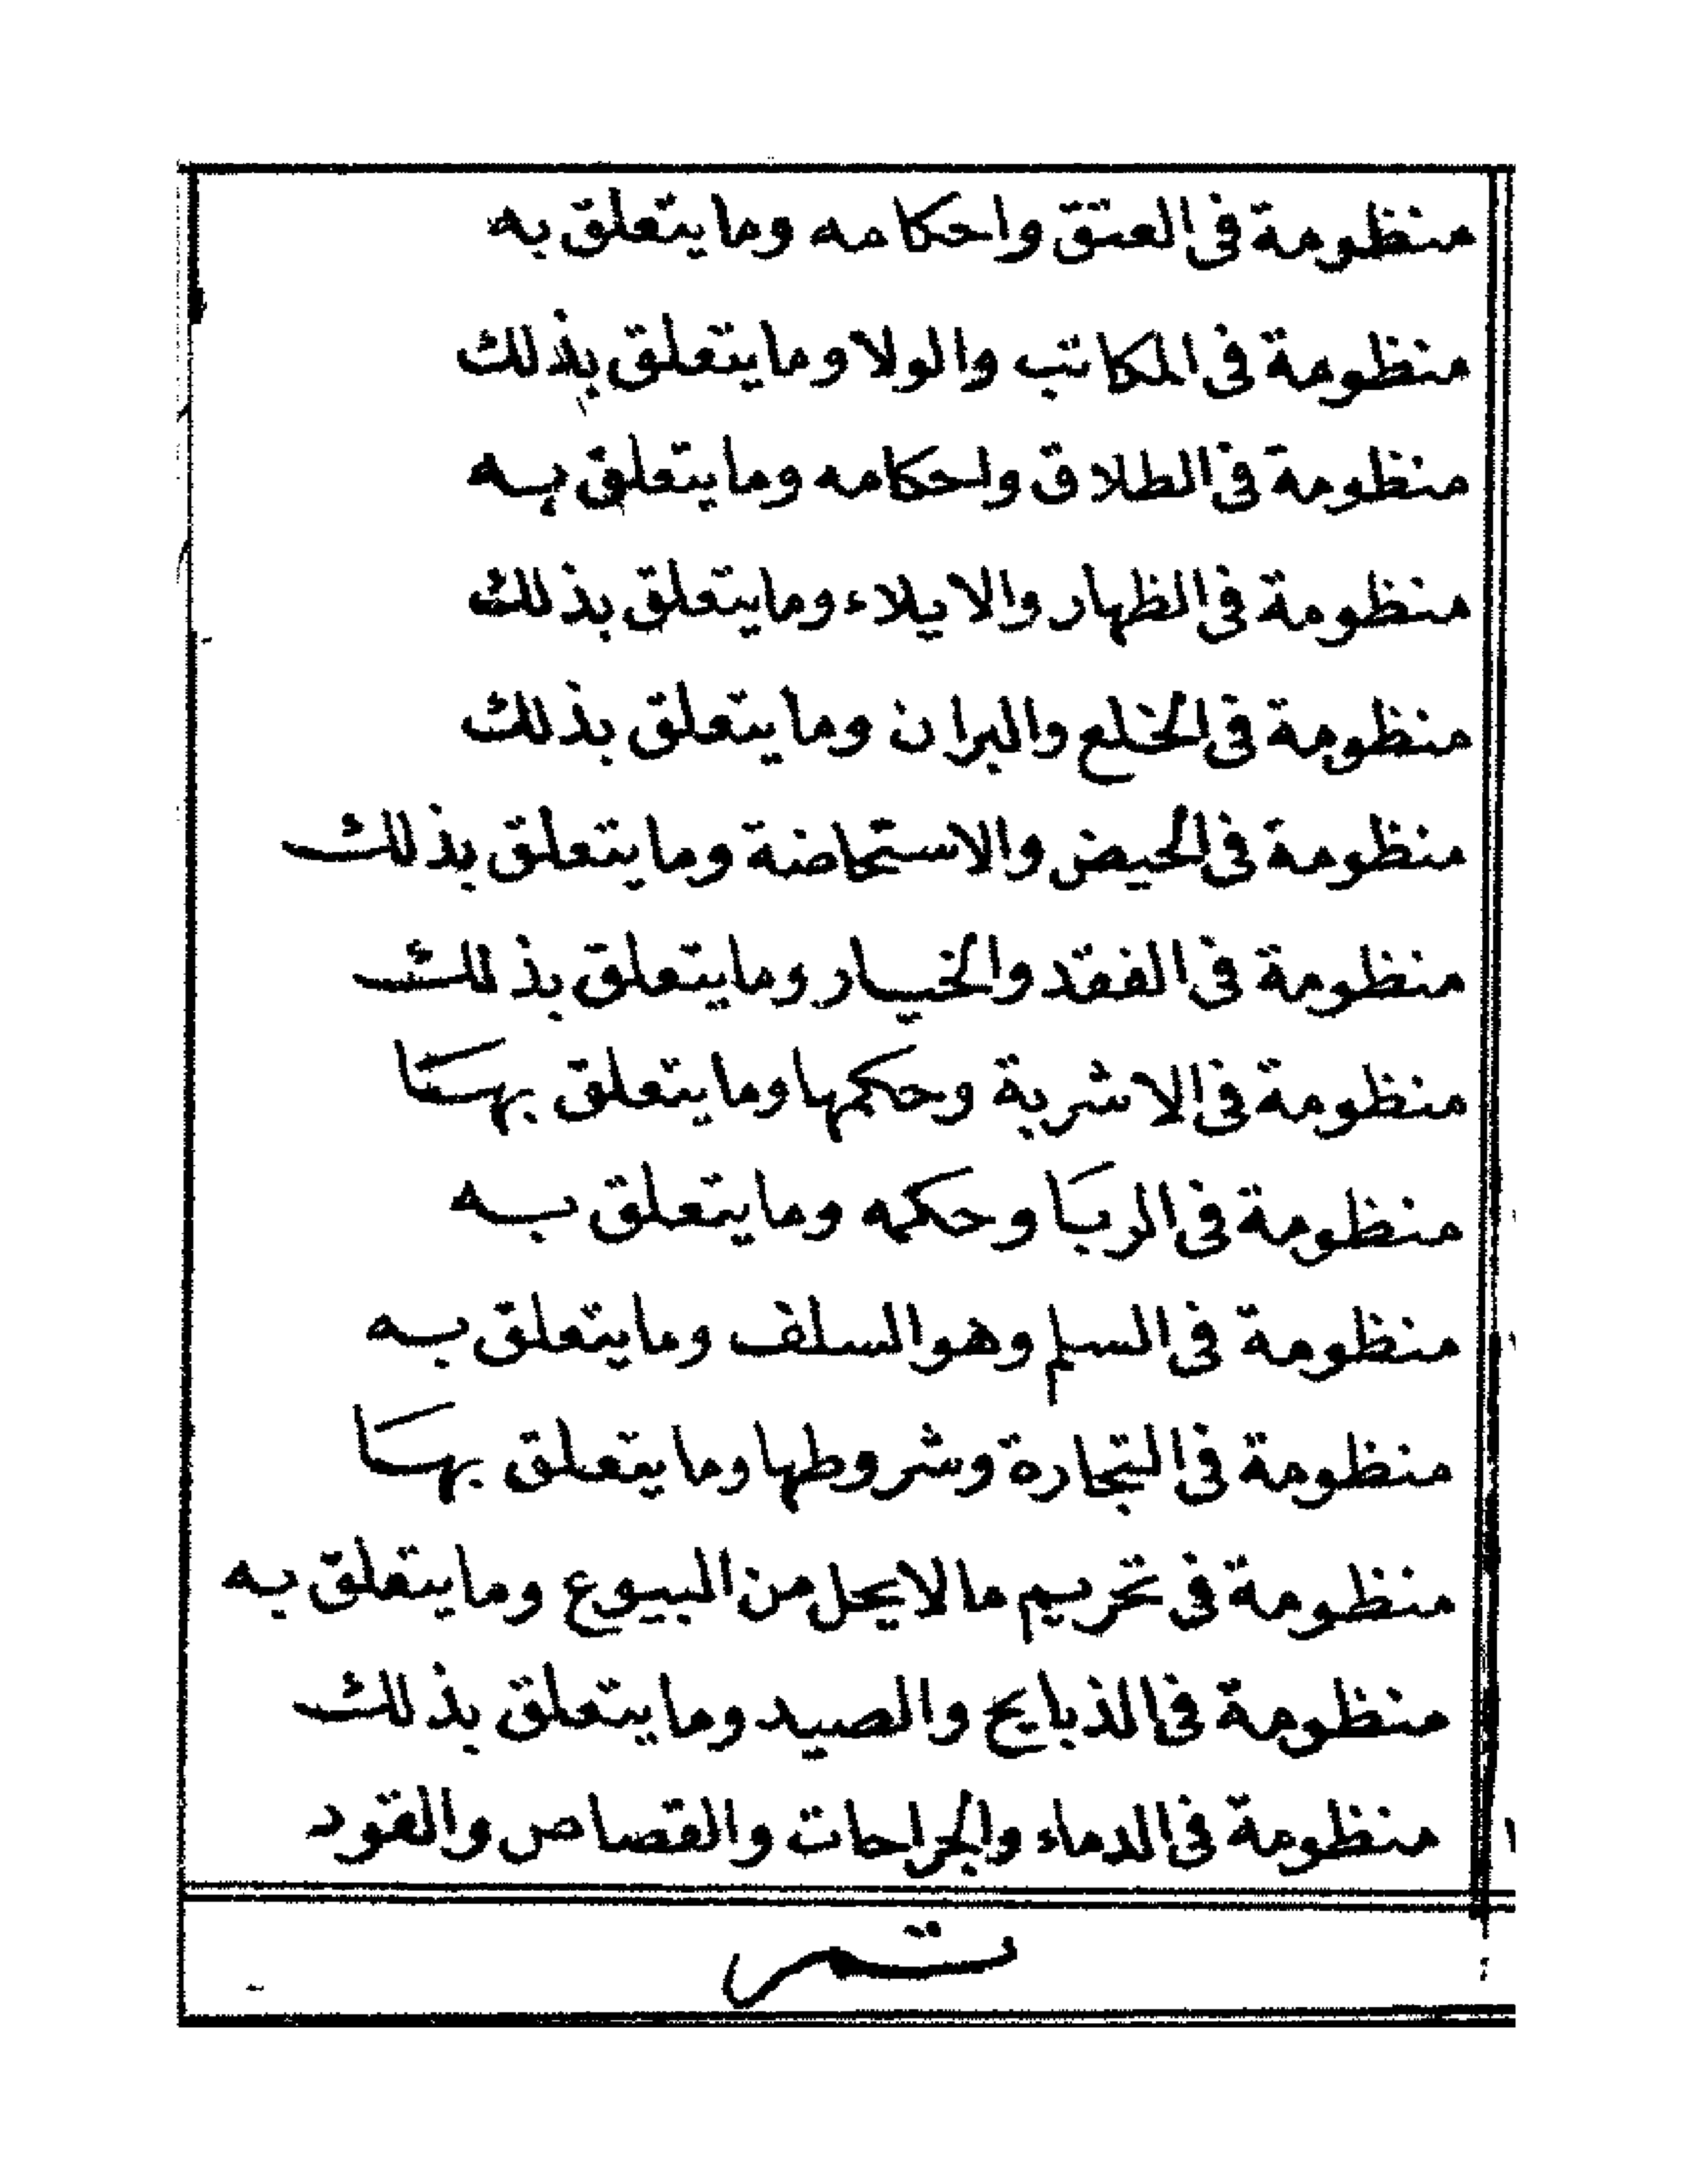 منظومة فى العتق واحكامه وما يتعلق به
منظومة فى المكاتب والولا وما يتعلق بذلك
منظومة فى الطلاق واحكامه وما يتعلق به
منظومة فى الظهار والايلاء وما يتعلق بذلك
منظومة فى الخلع والبران وما يتعلق بذلك
منظومة فى الحيض والاستحاضة وما يتعلق بذلك
منظومة فى الفقد والخيار وما يتعلق بذلك
منظومة فى الاشربة وحكمها وما يتعلق بها
منظومة فى الربا وحكمه وما يتعلق به
منظومة فى السلم وهو السلف وما يتعلق به
منظومة فى التجارة وشروطها وما يتعلق بها
منظومة فى تحريم ما لا يحل من البيوع وما يتعلق به
منظومة فى الذبايح والصيد وما يتعلق بذلك
منظومة فى الدماء والجراحات والقصاص والقود
تمر